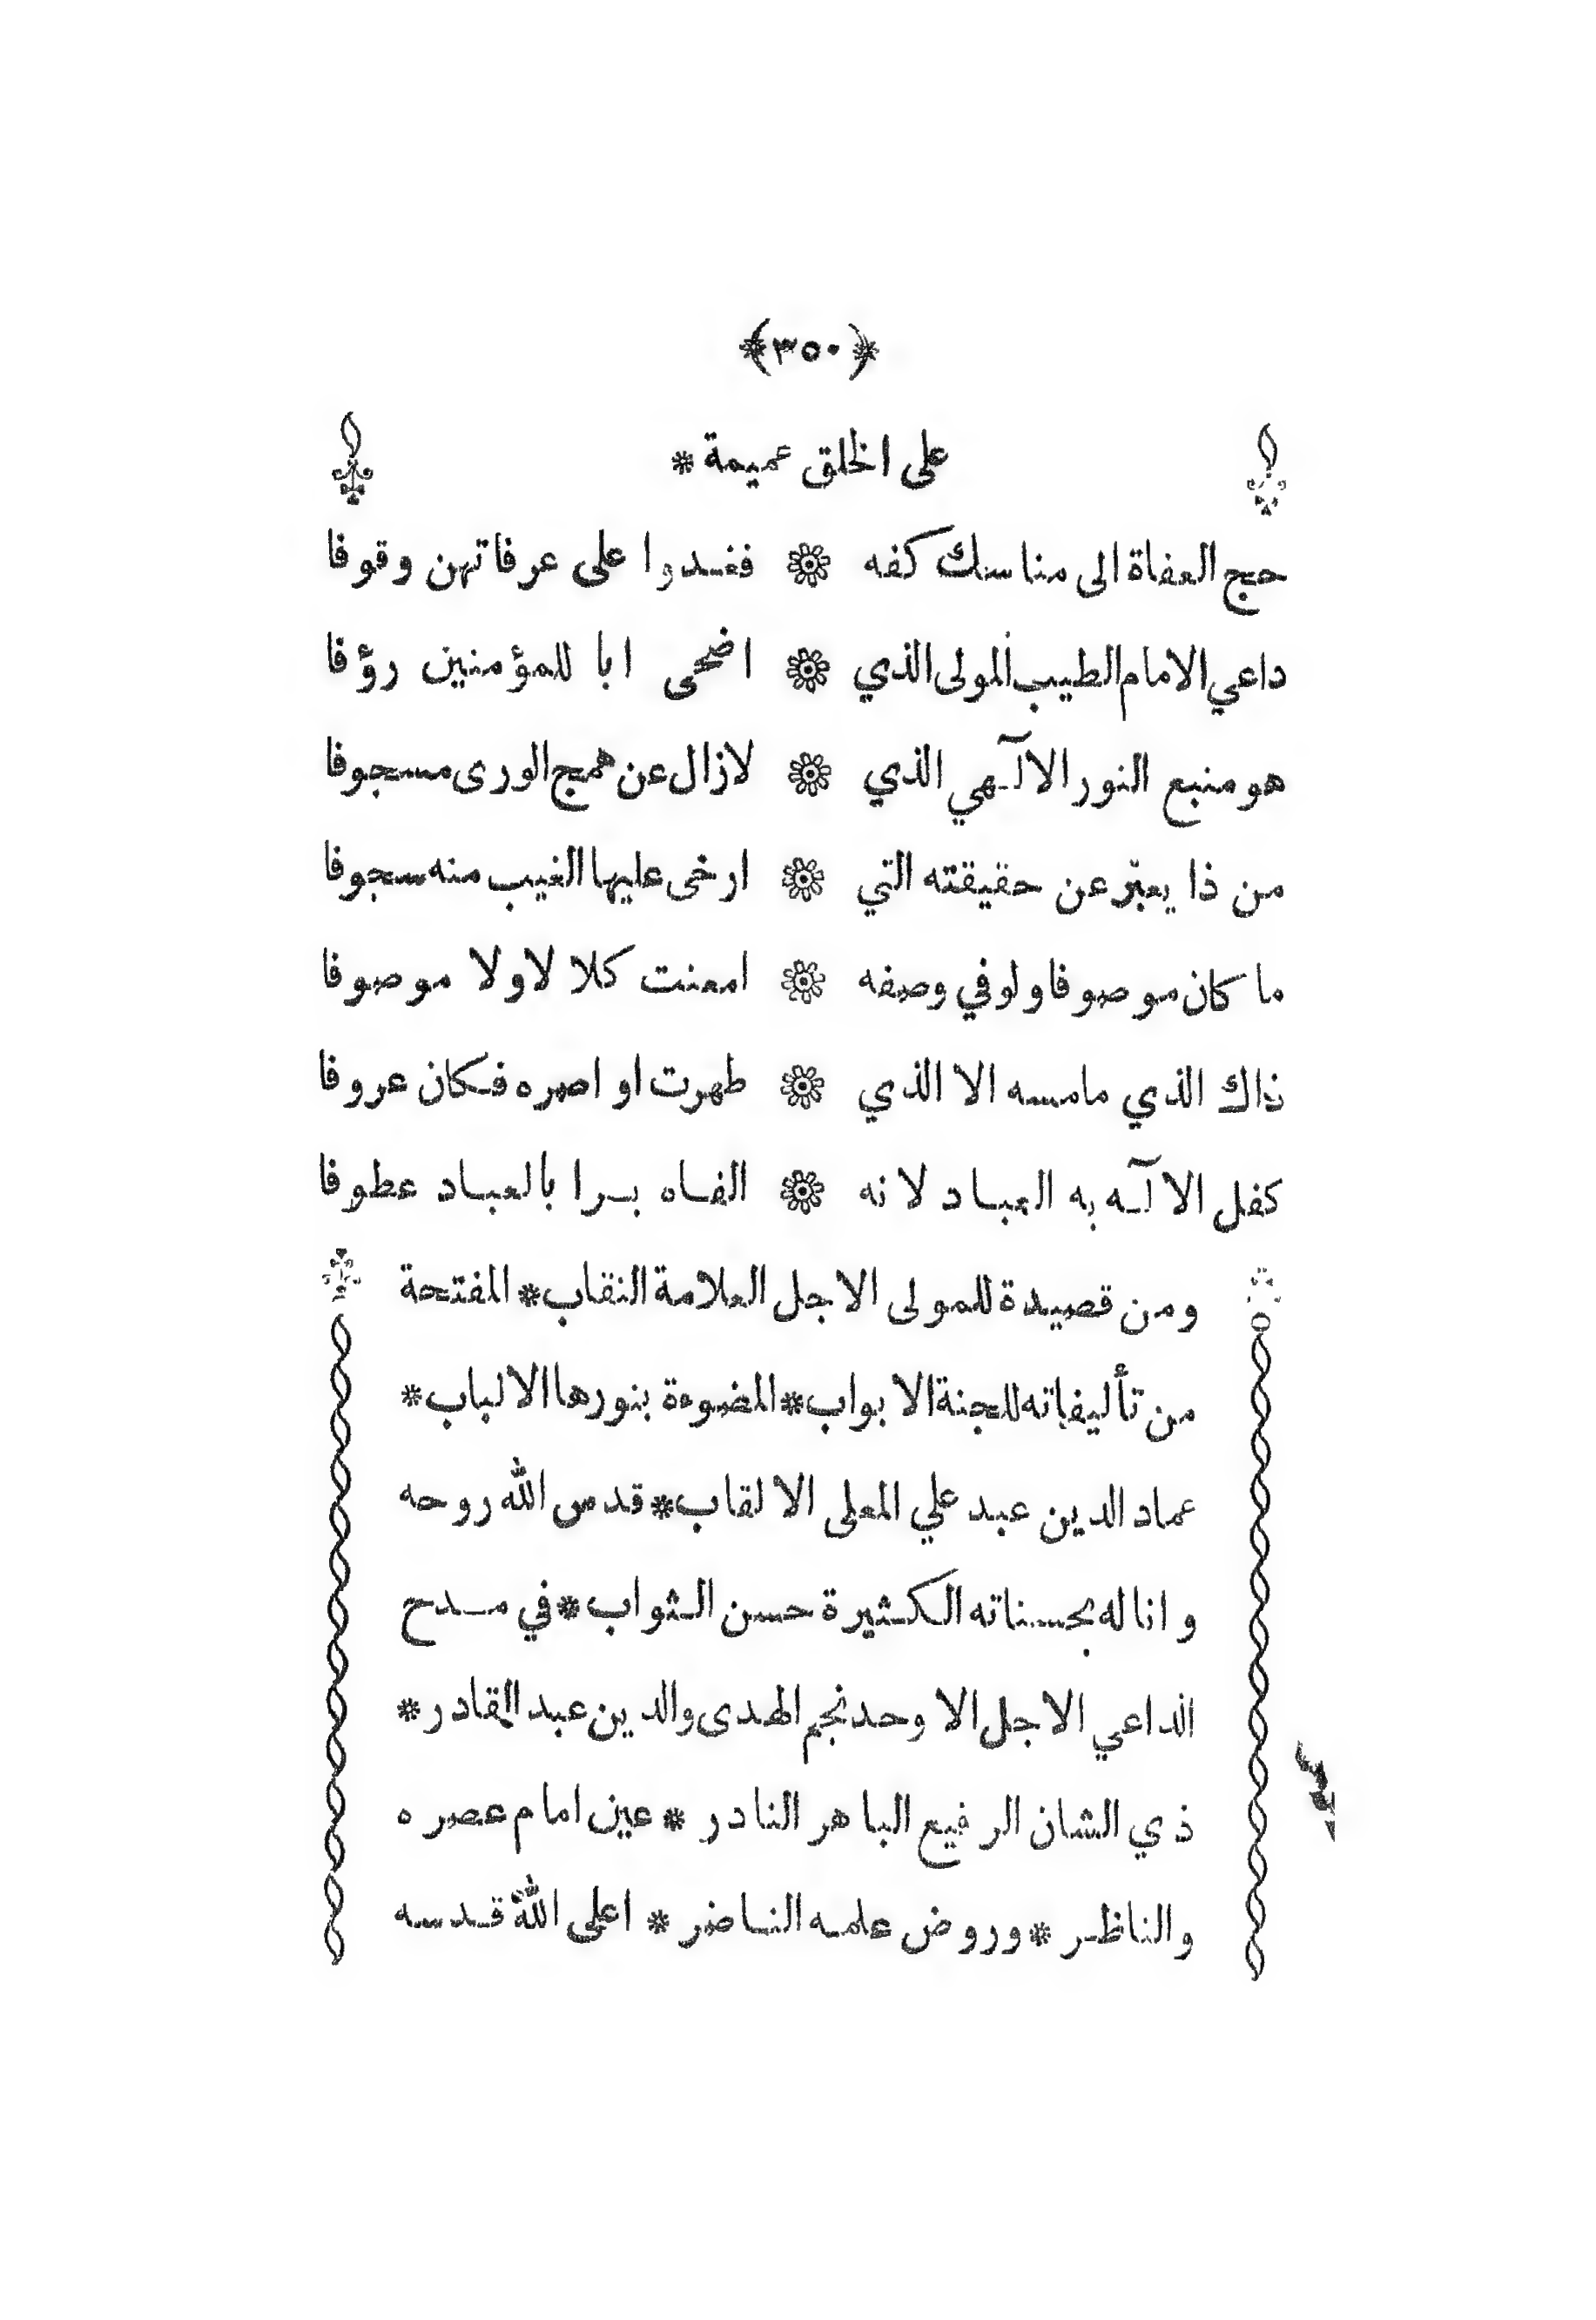 ﴿٣٥٠﴾
على الخلق عميمة *
حج العفاة الى مناسك كفه * فغدوا على عرفاتهن وقوفا
داعي الامام الطيب المولى الذي * اضحى ابا للمؤمنين رؤفا
هو منبع النور الاآلهي الذي * لازال عن همج الورى مسجوفا
من ذا يعبّر عن حقيقته التي * ارخى عليها الغيب منه سجوفا
ما كان موصوفا ولو في وصفه * امعنت كلا لاولا موصوفا
ذاك الذي مامسه الا الذي * طهرت اواصره فكان عروفا
كفل الاآله به العباد لانه * الفاه برا بالعباد عطوفا
ومن قصيدة للمولى الاجل العلامة النقاب * المفتحة
من تأليفاته للجنة الابواب * المضوءة بنورها الالباب *
عماد الدين عبد علي المعلى الالقاب * قدس الله روحه
واناله بحسناته الكثيرة حسن الثواب * في مدح
الداعي الاجل الاوحد نجم الهدى والدين عبد القادر *
ذي الشان الرفيع الباهر النادر * عين امام عصره
والناظر * وروض علمه الناضر * اعلى الله قدسه